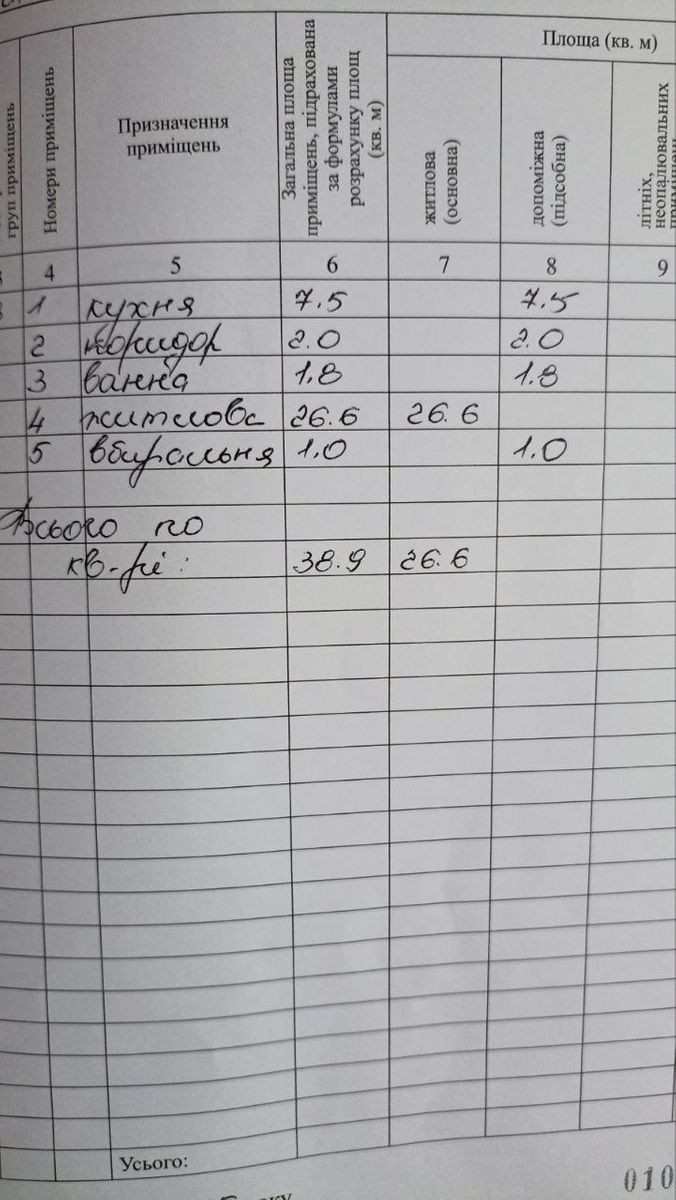 груп приміщень
Номери приміщень
Призначення
приміщень
Загальна площа
приміщень, підрахована
за формулами
розрахунку площ
(кв. м)
Площа (кв. м)
житлова
(основна)
допоміжна
(підсобна)
літніх,
неопалювальних
4 5 6 7 8 9
1 кухня 7.5 7.5
2 коридор 2.0 2.0
3 ванна 1.8 1.8
4 житлова 26.6 26.6
5 вбиральня 1.0 1.0
Всього по
кв-рі: 38.9 26.6
Усього:
010